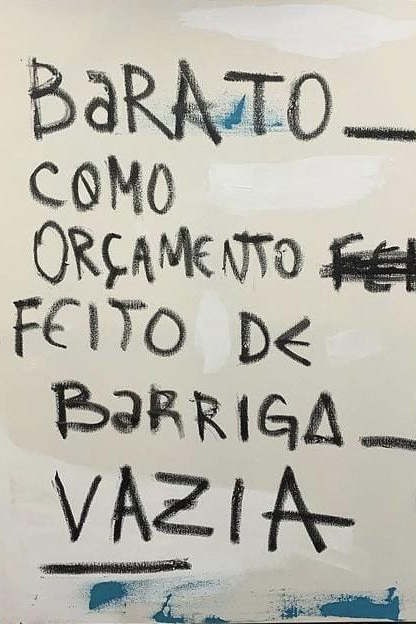 BaRATO_
COMO
ORÇAMENTO FEI
FEITO DE
BaRRIGA_
VAZIA